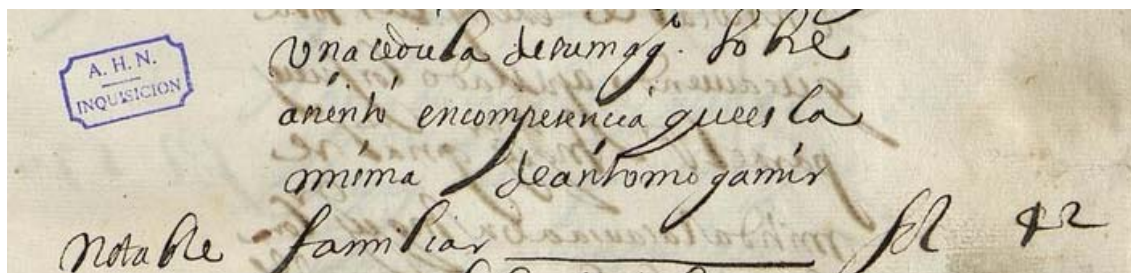 A. H. N.
INQUISICION
Una cedula de su magd. sobre
asiento en competencia que es la
misma de antonio gamir
Notable familiar fol 42